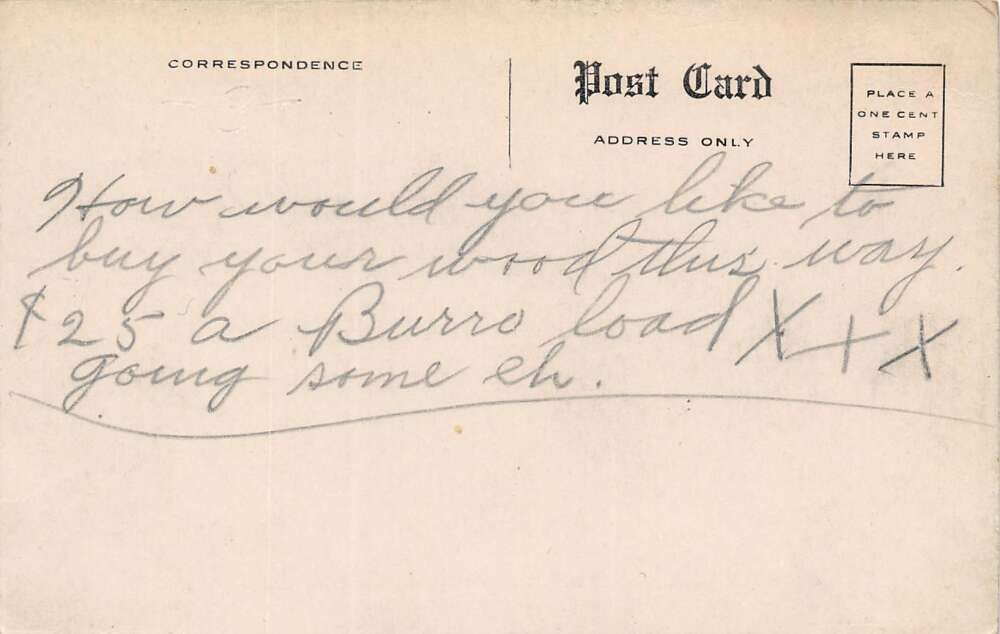 CORRESPONDENCE
Post Card
ADDRESS ONLY
PLACE A
ONE CENT
STAMP
HERE
How would you like to
buy your wood this way.
$25 a Burro load X X X
going some eh.